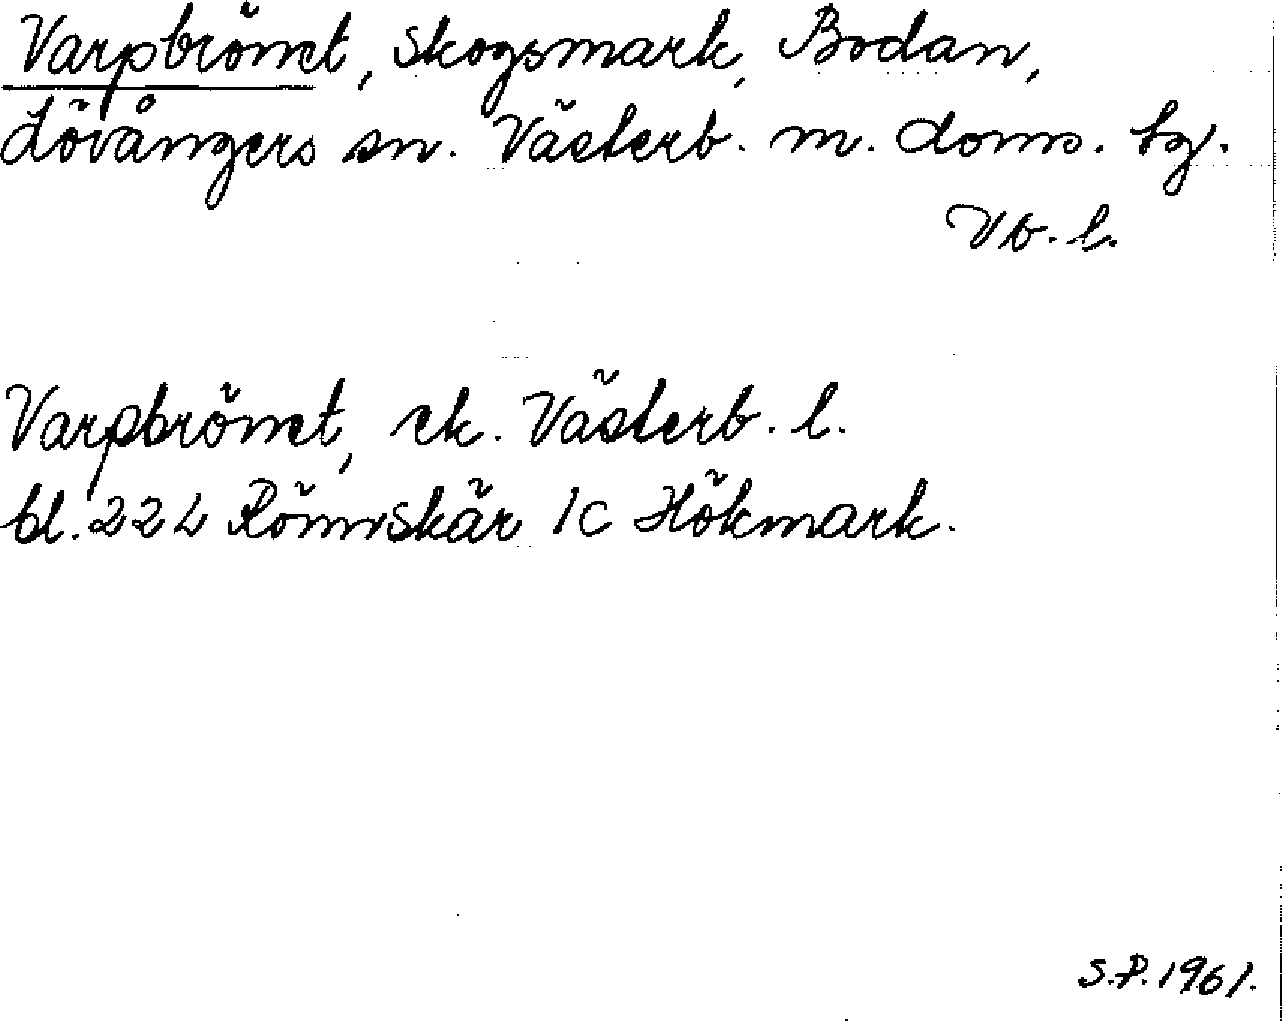 Varpbrönet, skogsmark, Bodan,
Lövångers sn. Västerb. m. doms. tg.
Vb. l.
Varpbrönet, ek. Västerb. l.
bl. 22L Rönnskär 1c Hökmark.
S.P. 1961.